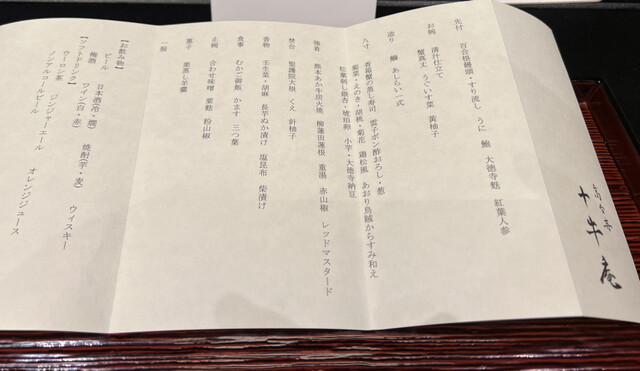 十牛庵
先付 百合根饅頭・すり流し うに 鮑 大徳寺麩 紅葉人参
お椀 清汁仕立て
蟹真丈 うぐいす菜 黄柚子
造り 鰤 あしらい一式
八寸 香箱蟹の蒸し寿司 雲子ポン酢おろし・葱
菊菜・えのき・胡桃・菊花 鶏松風 あおり烏賊からすみ和え
松葉刺し銀杏・琥珀卵 小芋・大徳寺納豆
強肴 熊本あか牛炭火焼 柳蓮田蓮根 重湯 赤山椒 レッドマスタード
焚合 聖護院大根 くえ 針柚子
香物 壬生菜・胡麻 長芋ぬか漬け 塩昆布 柴漬け
食事 むかご御飯 かます 三つ葉
止椀 合わせ味噌 粟麩 粉山椒
菓子 栗蒸し羊羹
一服
【お飲み物】
ビール 日本酒(冷・燗) 焼酎(芋・麦) ウィスキー
梅酒 ワイン(白・赤)
【ソフトドリンク】
ウーロン茶 ジンジャーエール オレンジジュース
ノンアルコールビール